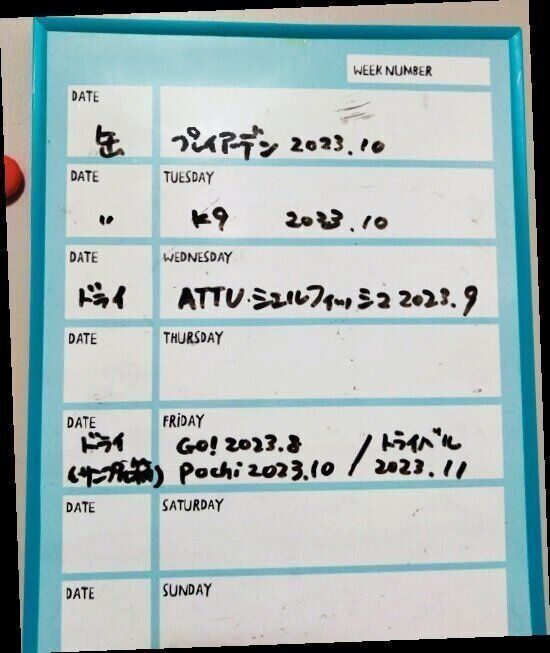 WEEK NUMBER
DATE
缶 プレイアーデン 2023.10
DATE TUESDAY
〃 K9 2023.10
DATE WEDNESDAY
ドライ ATTU・シュルフィッシュ 2023.9
DATE THURSDAY
DATE FRiDAY
ドライ GO! 2023.8 / トライバル
(サンプル Pochi 2023.10 / 2023.11
DATE SATURDAY
DATE SUNDAY